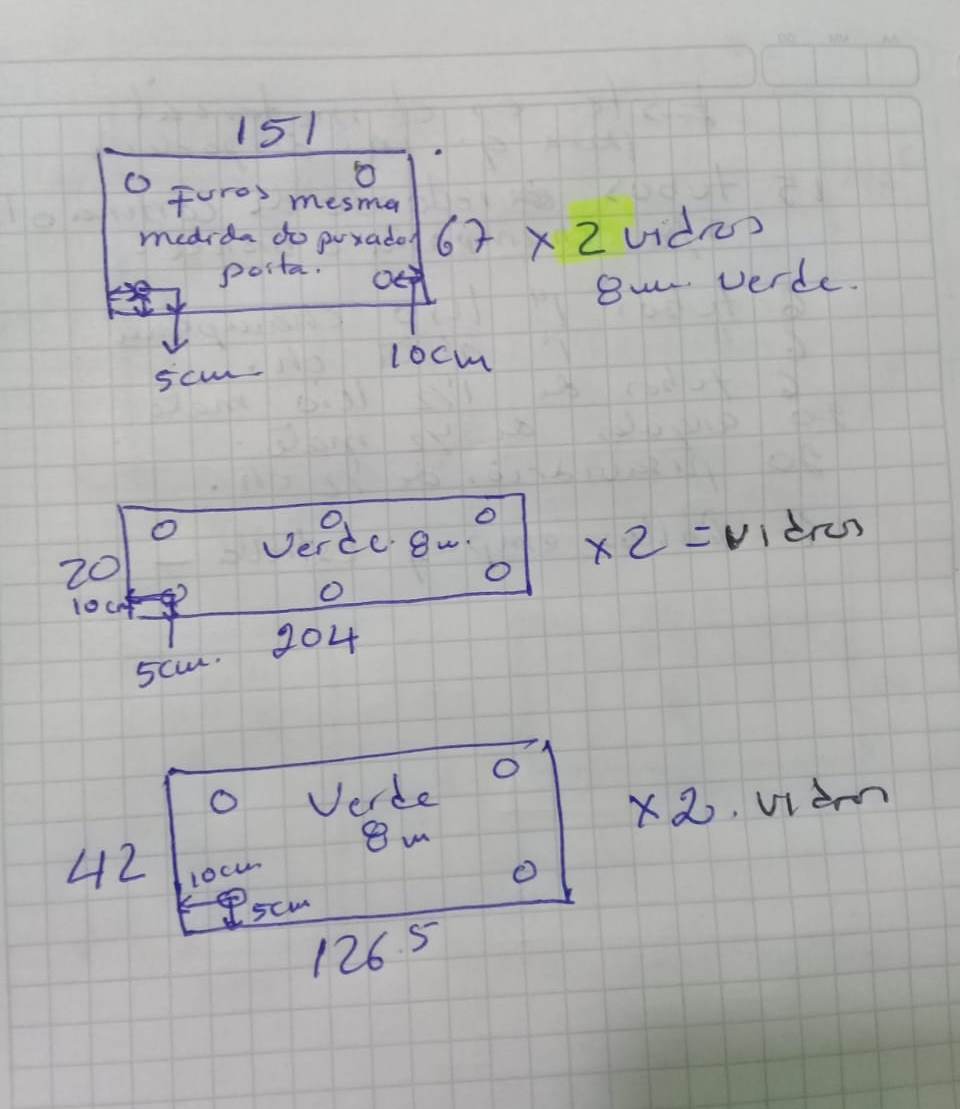 151
Furos mesma
medida do puxador
porta.
67 x 2 vidros
8m verde.
5cm
10cm
Verde 8m.
x2 = vidros
20
10cm
204
5cm.
Verde
8m
x2. vidros
42
10cm
5cm
126.5